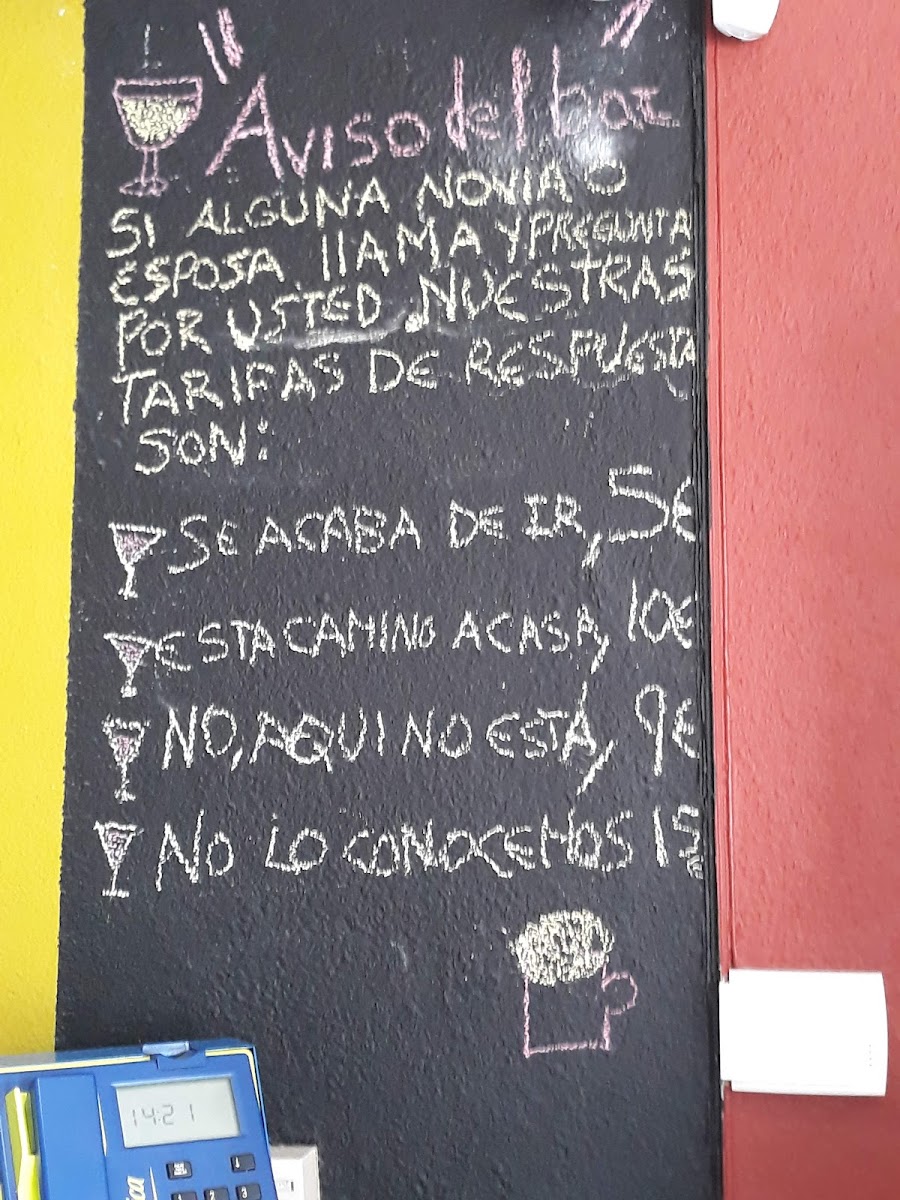 "Aviso del bar"
SI ALGUNA NOVIA O
ESPOSA llAMA Y PREGUNTA
POR USTED, NUESTRAS
TARIFAS DE RESPUESTA
SON:
SE ACABA DE IR, 5€
ESTA CAMINO A CASA, 10€
NO, AQUI NO ESTÁ, 9€
NO LO CONOCEMOS 15€
14:21
1
2
3